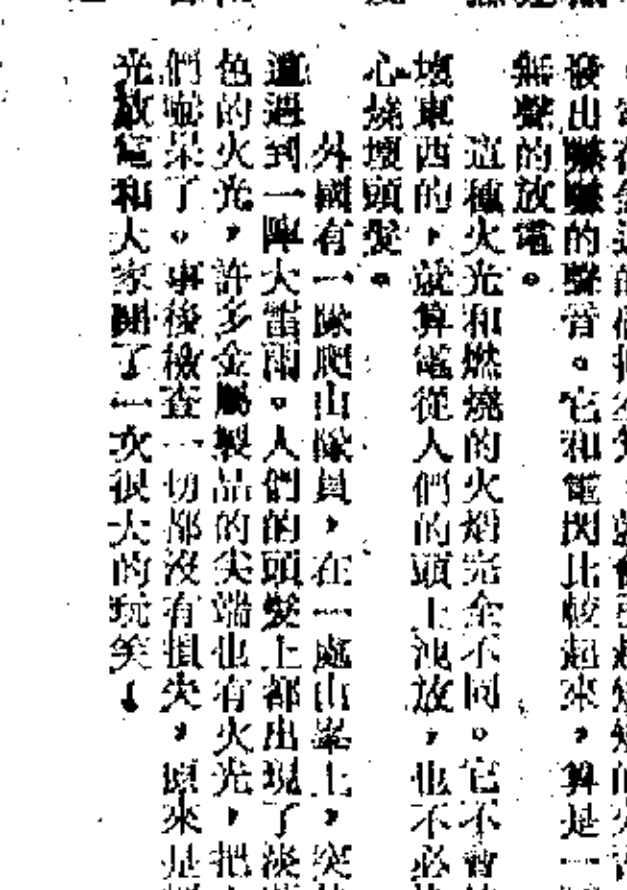 發出嚇嚇的聲音。它和電閃比較起來,算是一
無聲的放電。
這種火光和燃燒的火焰完全不同。它不會
壞東西的,就算電從人們的頭上洩放,也不必
心燒壞頭髮。
外國有一隊爬山隊員,在一處山峯上,突
遭遇到一陣大雷雨。人們的頭髮上都出現了淡
色的火光,許多金屬製品的尖端也有火光,把
們嚇呆了。事後檢查一切都沒有損失,原來是
光放電和大家開了一次很大的玩笑!